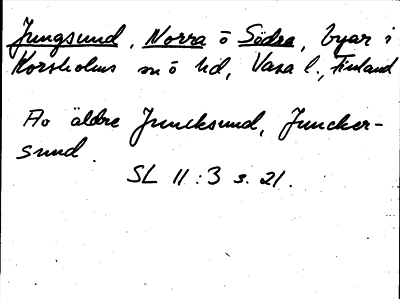 Jungsund, Norra o Södra, byar i
Korsholms sn o hd, Vasa l., Finland
Av äldre Juncksund, Juncker-
sund.
SL 11:3 s. 21.